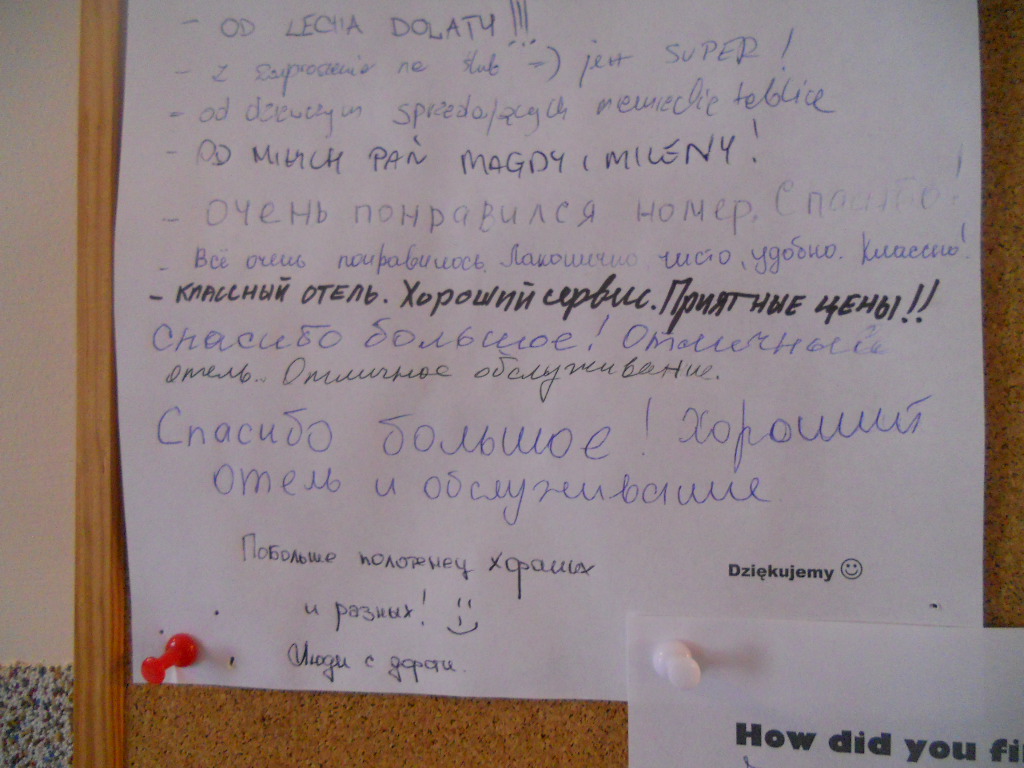 - OD LECHA DOLATY!!!
- z zaproszenia na ślub =) jest SUPER!
- od dziewczyn sprzedających niemieckie tablice
- OD MIŁYCH PAŃ MAGDY i MILENY!
- Очень понравился номер. Спасибо!
- Всё очень понравилось. Лаконично, чисто, удобно. Классно!
- классный отель. Хороший сервис. Приятные цены!!
Спасибо большое! Отличный
отель. Отличное обслуживание.
Спасибо большое! Хороший
отель и обслуживание
Побольше полотенец хороших
и разных!
Люди с дороги.
Dziękujemy ☺
How did you fi